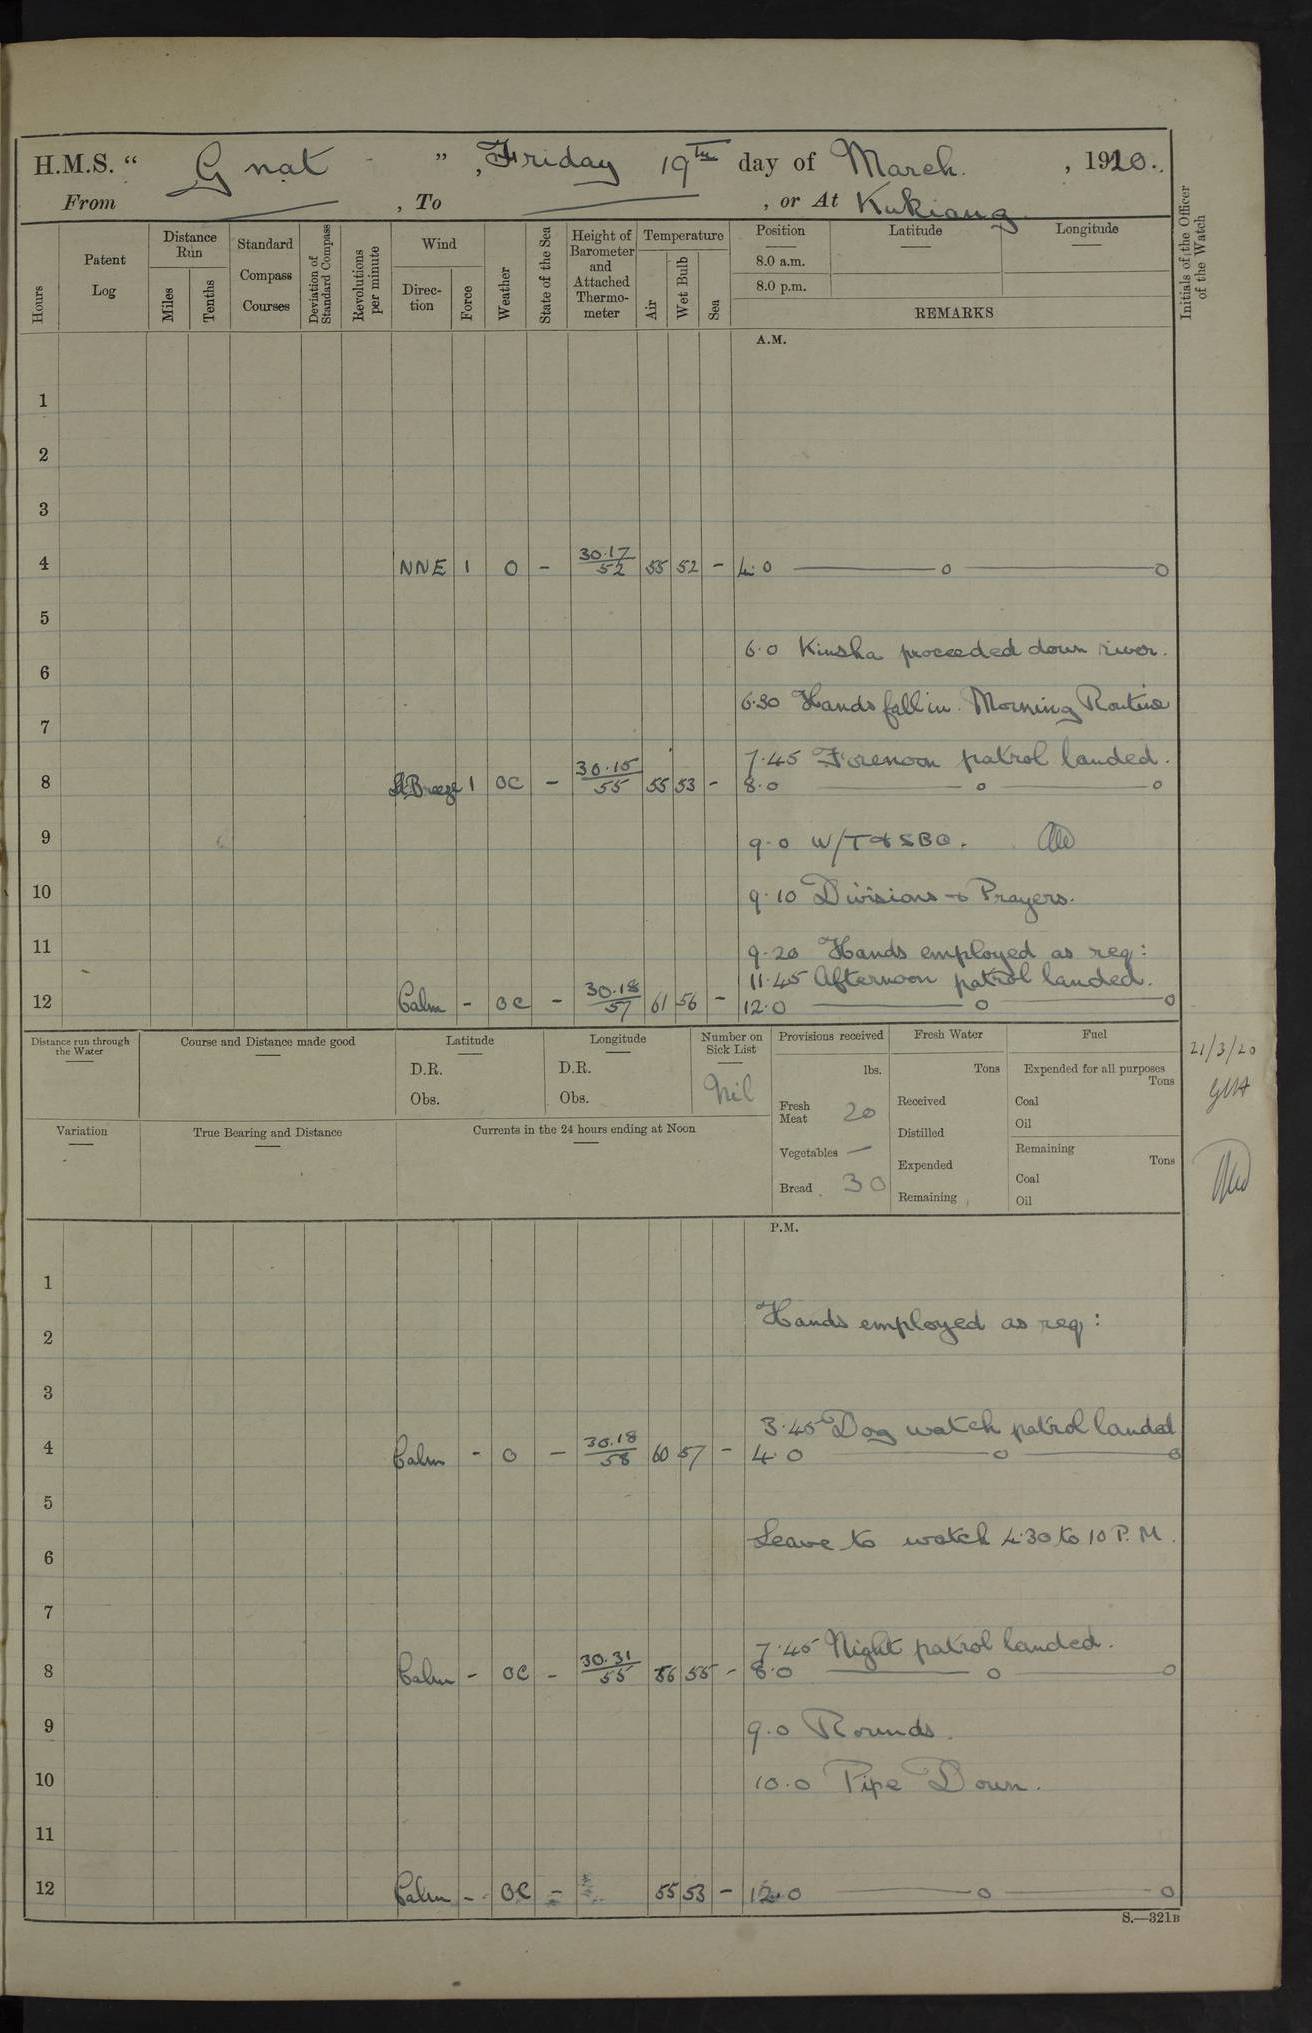 H.M.S. " Gnat ", Friday 19th day of March. , 1920.
From , To , or At Kukiang
Hours
Patent Log
Distance Run
Miles
Tenths
Standard Compass Courses
Deviation of Standard Compass
Revolutions per minute
Wind
Direction
Force
Weather
State of the Sea
Height of Barometer and Attached Thermometer
Temperature
Air
Wet Bulb
Sea
Position
8.0 a.m.
8.0 p.m.
Latitude
Longitude
REMARKS
Initials of the Officer of the Watch
A.M.
1
2
3
4 NNE 1 O - 30.17/52 55 52 - 4.0 — o — o
5
6.0 Kinsha proceeded down river.
6
6.30 Hands fall in. Morning Routine
7
7.45 Forenoon patrol landed.
8 Breeze 1 OC - 30.15/55 55 53 - 8.0 — o — o
9 9.0 W/T & SBO.
10 9.10 Divisions & Prayers.
11 9.20 Hands employed as req:
11.45 Afternoon patrol landed.
12 Calm - OC - 30.18/57 61 56 - 12.0 — o — o
Distance run through the Water
Course and Distance made good
Latitude
D.R.
Obs.
Longitude
D.R.
Obs.
Number on Sick List
Nil
Provisions received
lbs.
Fresh Meat 20
Vegetables —
Bread 30
Fresh Water
Tons
Received
Distilled
Expended
Remaining
Fuel
Expended for all purposes
Tons
Coal
Oil
Remaining
Tons
Coal
Oil
21/3/20
Variation
True Bearing and Distance
Currents in the 24 hours ending at Noon
P.M.
1
Hands employed as req:
2
3
3.45 Dog watch patrol landed
4 Calm - O - 30.18/58 60 57 - 4.0 — o — o
5
Leave to watch 4.30 to 10 P.M.
6
7
7.45 Night patrol landed.
8 Calm - OC - 30.31/55 56 55 - 8.0 — o — o
9 9.0 Rounds.
10 10.0 Pipe Down.
11
12 Calm - OC - 55 53 - 12.0 — o — o
S.—321B